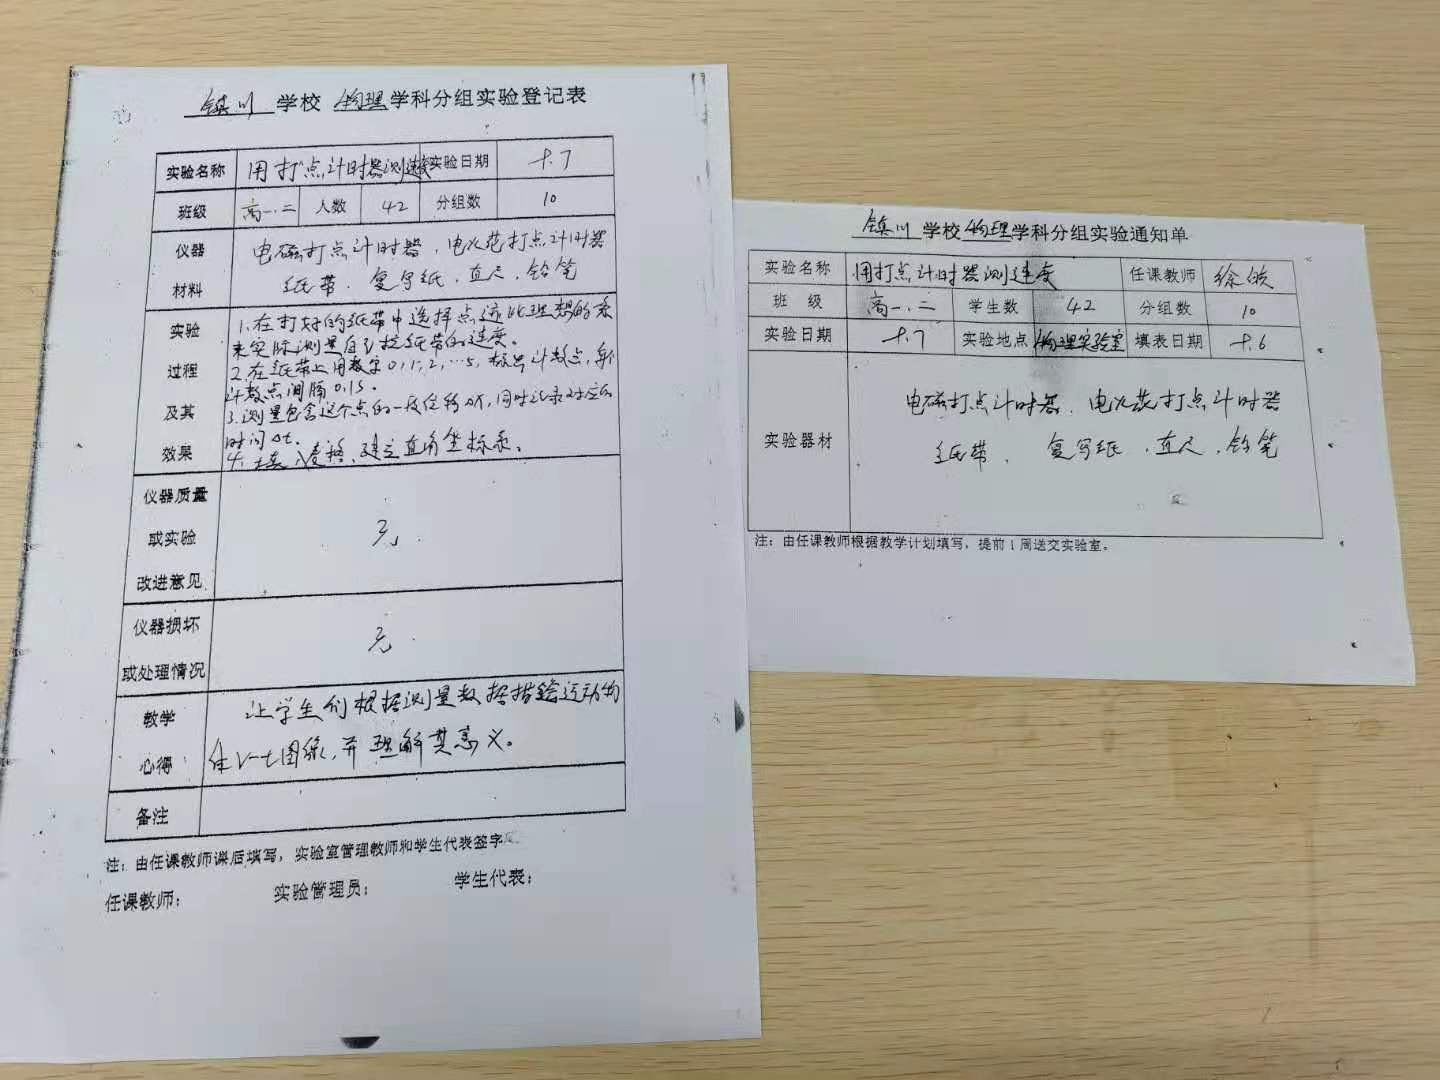 镇川 学校 物理 学科分组实验登记表
实验名称 用打点计时器测速度 实验日期 9.7
班级 高一.二 人数 42 分组数 10
仪器 材料
电磁打点计时器、电火花打点计时器
纸带、复写纸、直尺、铅笔
实验 过程 及其 效果
1.在打好的纸带中选择点迹比较理想的来
实际测量自己拉纸带的速度。
2.在纸带上用数字0,1,2,…5,标号计数点,
计数点间隔0.1s.
3.测量包含这个点的一段位移Δx,同时记录对应的
时间Δt.
4.填入表格,建立直角坐标系。
仪器质量 或实验 改进意见
无.
仪器损坏 或处理情况
无.
教学 心得
让学生们根据测量数据描绘运动物
体v-t图像,并理解其意义。
备注
注:由任课教师课后填写,实验室管理教师和学生代表签字
任课教师: 实验管理员: 学生代表:
镇川 学校 物理 学科分组实验通知单
实验名称 用打点计时器测速度 任课教师 徐
班 级 高一.二 学生数 42 分组数 10
实验日期 9.7 实验地点 物理实验室 填表日期 9.6
实验器材
电磁打点计时器、电火花打点计时器
纸带、复写纸、直尺、铅笔
注:由任课教师根据教学计划填写,提前1周送交实验室。